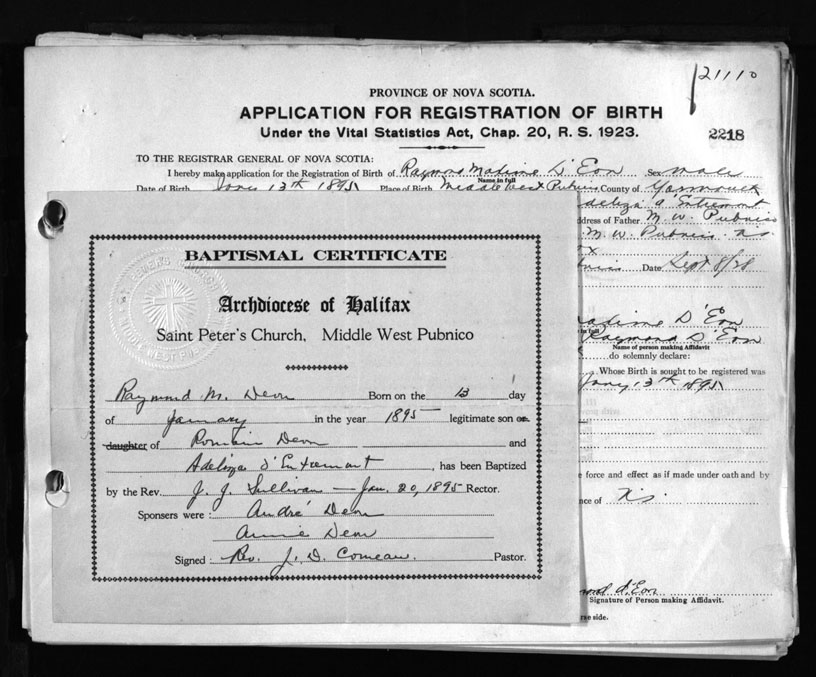 21110
PROVINCE OF NOVA SCOTIA.
APPLICATION FOR REGISTRATION OF BIRTH
Under the Vital Statistics Act, Chap. 20, R. S. 1923.
2218
TO THE REGISTRAR GENERAL OF NOVA SCOTIA:
I hereby make application for the Registration of Birth of Raymond D'Eon Sex male
Name in full
Date of Birth Jany 13th 1895 Place of Birth Middle West Pubnico County of Yarmouth
Address of Father M. W. Pubnico
M. W. Pubnico N.S.
Date Sept 8/28
D'Eon
Raymond D'Eon
Name of person making Affidavit
do solemnly declare:
Whose Birth is sought to be registered was
Jany 13th 1895
force and effect as if made under oath and by
D'Eon
Signature of Person making Affidavit.
rse side.
BAPTISMAL CERTIFICATE
Archdiocese of Halifax
Saint Peter's Church, Middle West Pubnico
Raymond M. Deon Born on the 13 day
of January in the year 1895 legitimate son or
daughter of Romain Deon and
Adeliza d'Entremont, has been Baptized
by the Rev. J. J. Sullivan — Jan. 20, 1895 Rector.
Sponsors were : André Deon
Annie Deon
Signed : Rev. J. D. Comeau. Pastor.